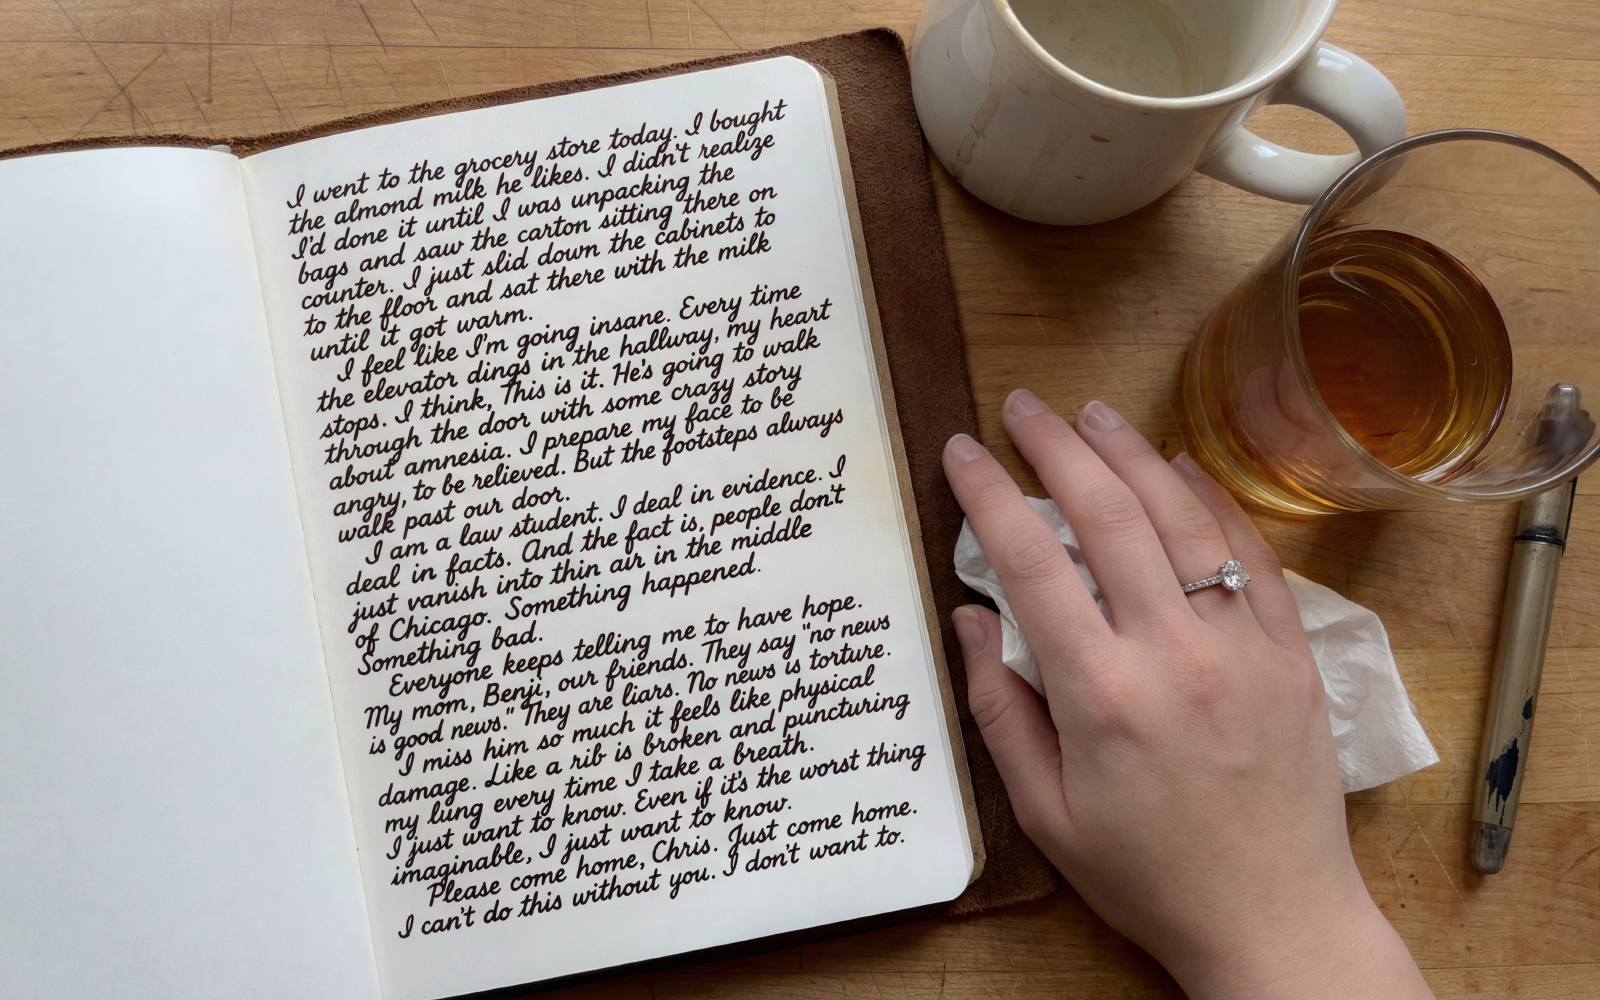 I went to the grocery store today. I bought
the almond milk he likes. I didn't realize
I'd done it until I was unpacking the
bags and saw the carton sitting there on
counter. I just slid down the cabinets to
to the floor and sat there with the milk
until it got warm.
I feel like I'm going insane. Every time
the elevator dings in the hallway, my heart
stops. I think, This is it. He's going to walk
through the door with some crazy story
about amnesia. I prepare my face to be
angry, to be relieved. But the footsteps always
walk past our door.
I am a law student. I deal in evidence. I
deal in facts. And the fact is, people don't
just vanish into thin air in the middle
of Chicago. Something happened.
Something bad.
Everyone keeps telling me to have hope.
My mom, Benji, our friends. They say "no news
is good news." They are liars. No news is torture.
I miss him so much it feels like physical
damage. Like a rib is broken and puncturing
my lung every time I take a breath.
I just want to know. Even if it's the worst thing
imaginable, I just want to know.
Please come home, Chris. Just come home.
I can't do this without you. I don't want to.